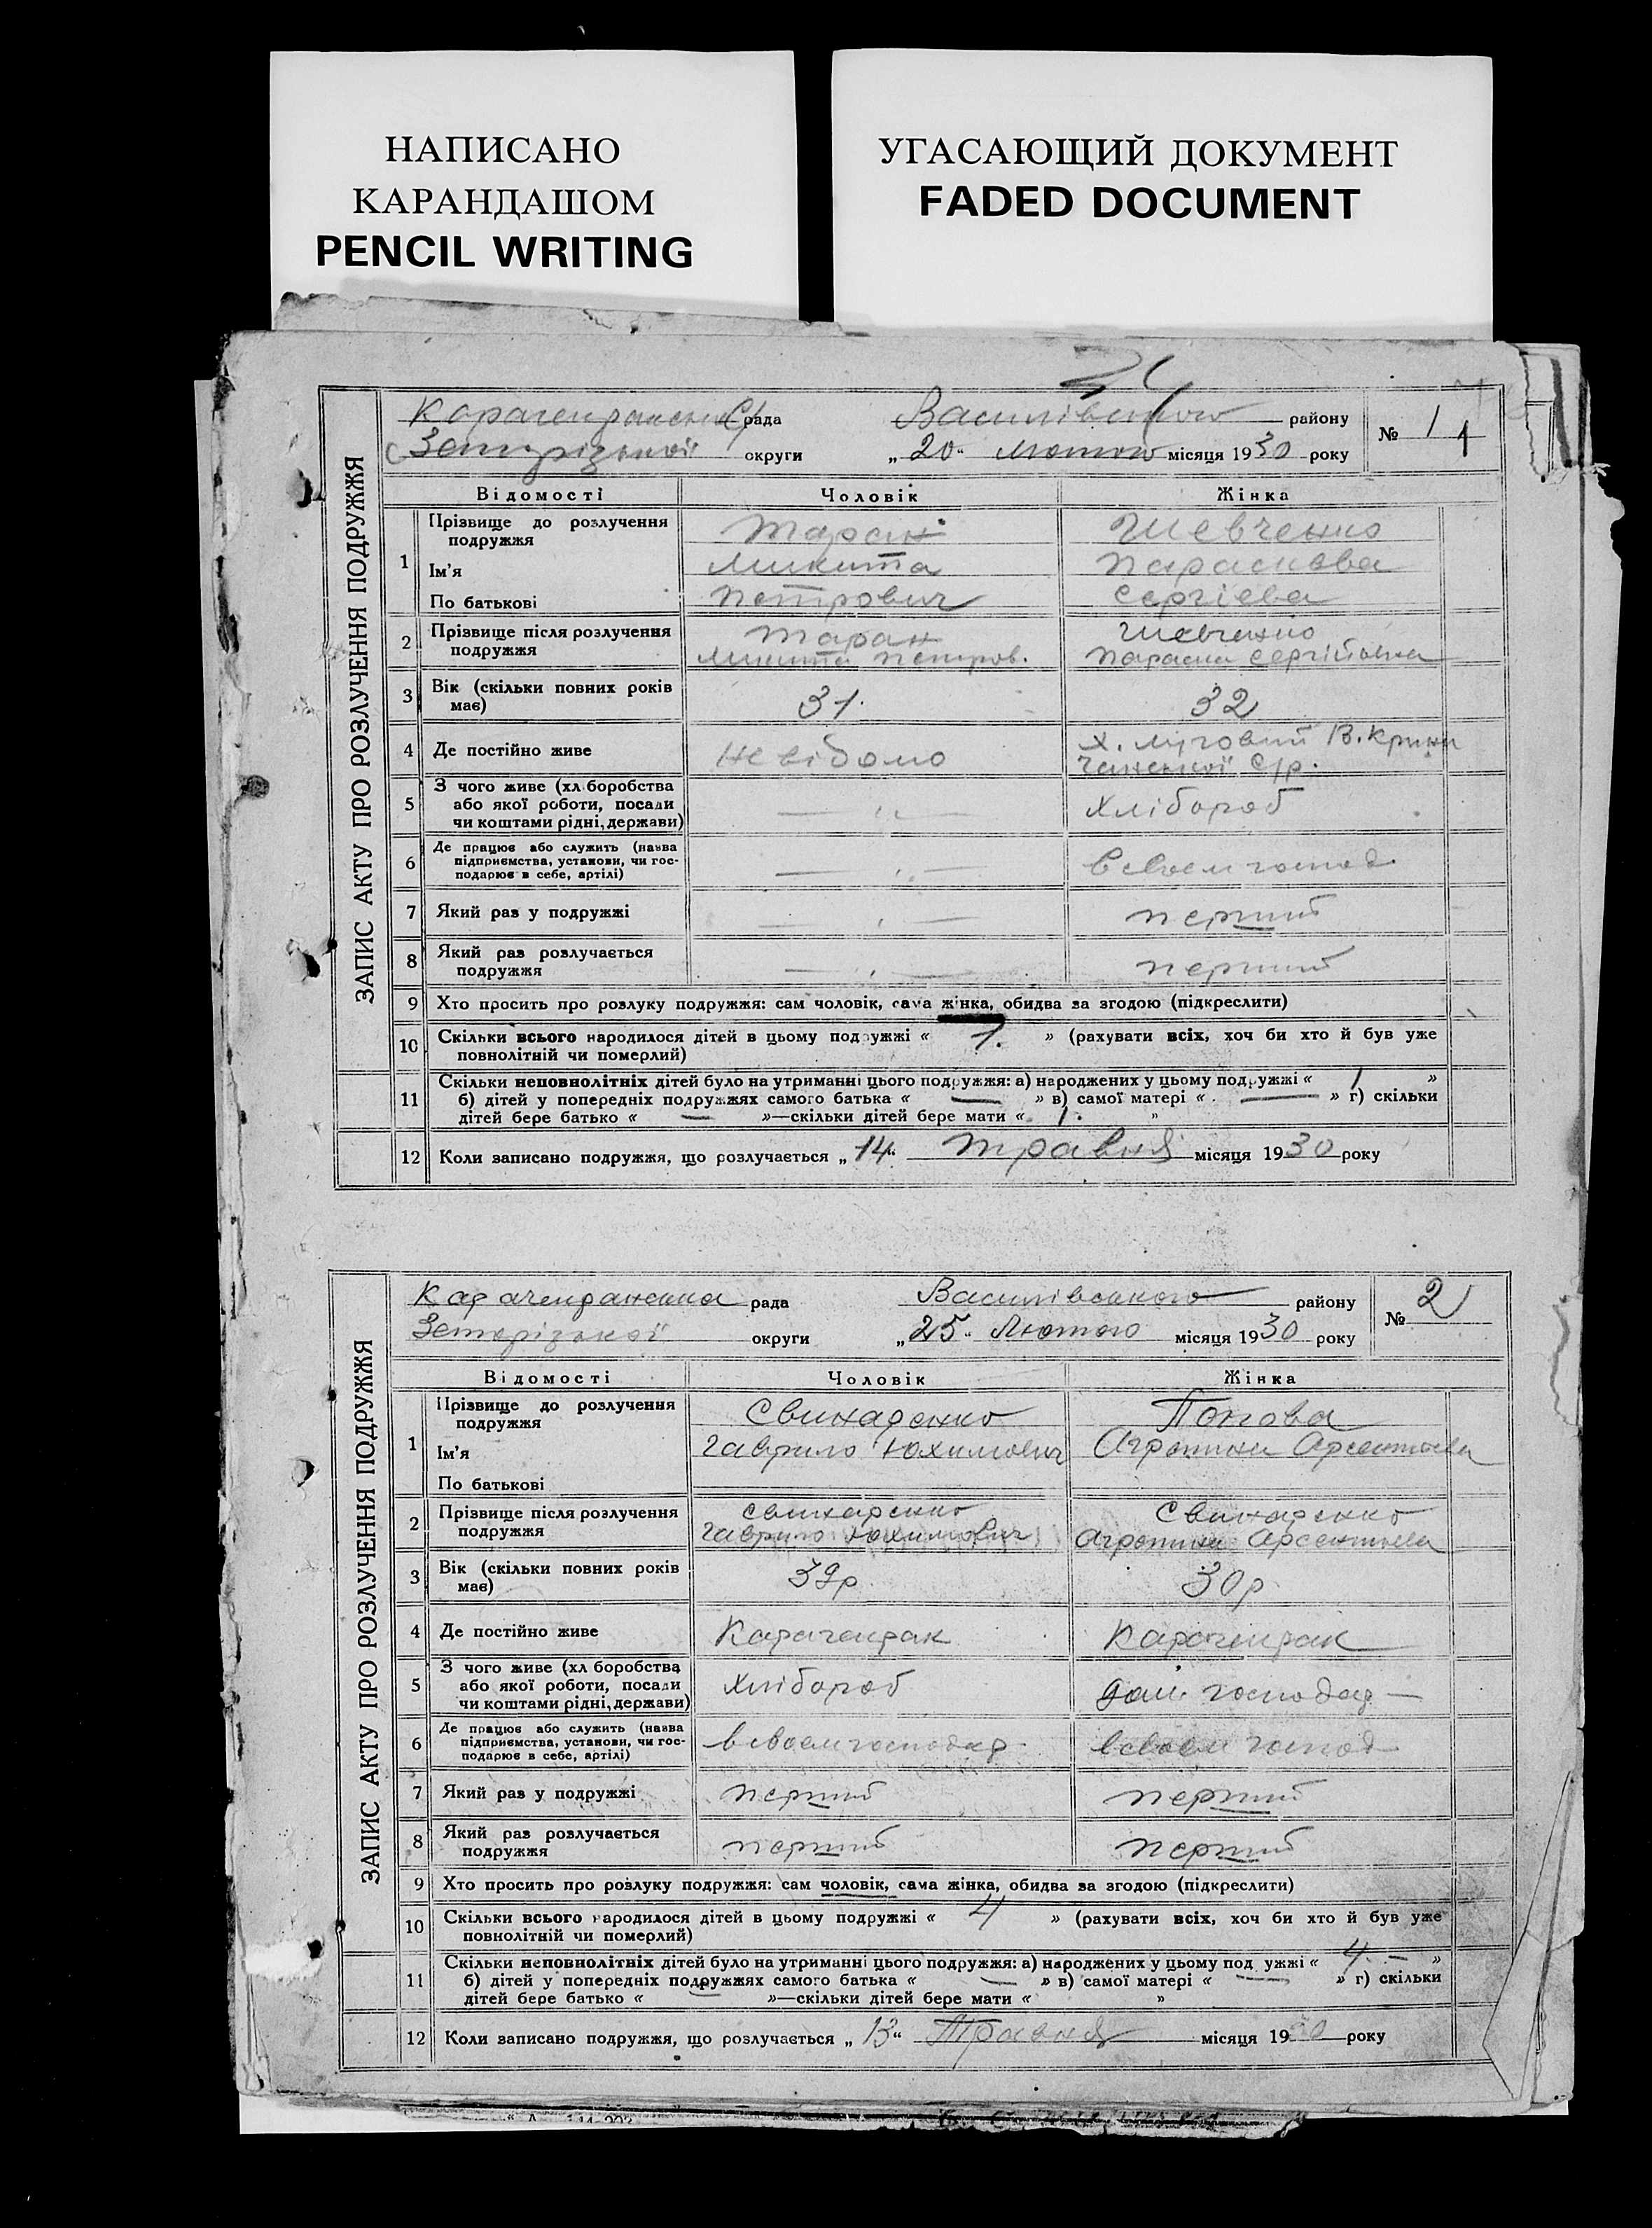 НАПИСАНО
КАРАНДАШОМ
PENCIL WRITING
УГАСАЮЩИЙ ДОКУМЕНТ
FADED DOCUMENT
ЗАПИС АКТУ ПРО РОЗЛУЧЕННЯ ПОДРУЖЖЯ
рада Василівського району № 1 1
Запорізької округи „ 20 “ Лютого місяця 1930 року
Відомості Чоловік Жінка
1 Прізвище до розлучення подружжя Таран Шевченко
Ім'я Микита Парасковa
По батькові Петрович Сергієва
2 Прізвище після розлучення Таран Шевченко
подружжя Микита Петров. Параска Сергійовна
3 Вік (скільки повних років має) 31. 32
4 Де постійно живе Невідомо х. Луговий В. Крини
чанської с/р.
5 З чого живе (хліборобства
або якої роботи, посади — „ — Хлібороб
чи коштами рідні, держави)
6 Де працює або служить (назва
підприємства, установи, чи гос- — „ — в своем господ.
подарює в себе, артілі)
7 Який раз у подружжі — „ — перший
8 Який раз розлучається
подружжя — „ — перший
9 Хто просить про розлуку подружжя: сам чоловік, сама жінка, обидва за згодою (підкреслити)
10 Скільки всього народилося дітей в цьому подружжі « 1. » (рахувати всіх, хоч би хто й був уже
повнолітній чи померлий)
11 Скільки неповнолітніх дітей було на утриманні цього подружжя: а) народжених у цьому подружжі « 1 »
б) дітей у попередніх подружжях самого батька « — » в) самої матері « — » г) скільки
дітей бере батько « — »—скільки дітей бере мати « 1. »
12 Коли записано подружжя, що розлучається „ 14 “ травня місяця 1930 року
ЗАПИС АКТУ ПРО РОЗЛУЧЕННЯ ПОДРУЖЖЯ
Карачекракська рада Василівського району № 2
Запорізької округи „ 25 “ Лютого місяця 1930 року
Відомості Чоловік Жінка
1 Прізвище до розлучення подружжя Свинаренко Попова
Ім'я Гаврило Юхимович Агропина Арсентьева
По батькові
2 Прізвище після розлучення Свинаренко Свинаренко
подружжя Гаврило Юхимович Агропина Арсентьева
3 Вік (скільки повних років має) 39р. 30р.
4 Де постійно живе Карачекрак Карачекрак
5 З чого живе (хліборобства
або якої роботи, посади Хлібороб дом. господар —
чи коштами рідні, держави)
6 Де працює або служить (назва
підприємства, установи, чи гос- в своем господар. в своем господ
подарює в себе, артілі)
7 Який раз у подружжі перший перший
8 Який раз розлучається
подружжя перший перший
9 Хто просить про розлуку подружжя: сам чоловік, сама жінка, обидва за згодою (підкреслити)
10 Скільки всього народилося дітей в цьому подружжі « 4 » (рахувати всіх, хоч би хто й був уже
повнолітній чи померлий)
11 Скільки неповнолітніх дітей було на утриманні цього подружжя: а) народжених у цьому подружжі « 4. — »
б) дітей у попередніх подружжях самого батька « — » в) самої матері « — » г) скільки
дітей бере батько « — »—скільки дітей бере мати « »
12 Коли записано подружжя, що розлучається „ 13 “ Травня місяця 1930 року